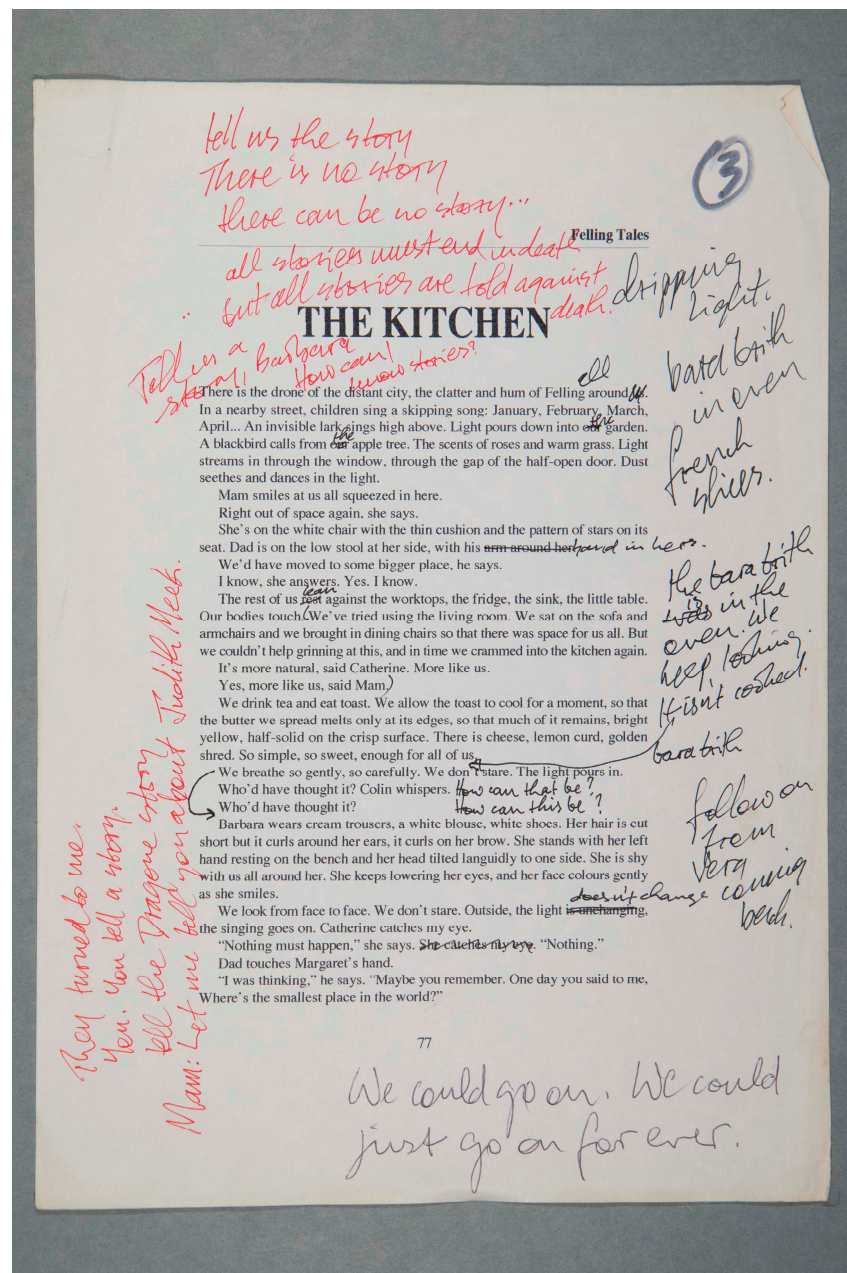 tell us the story
There is no story
there can be no story...
all stories must end in death
but all stories are told against
death.
Tell us a
story, Barbara
How can I
know stories?
3
Felling Tales
THE KITCHEN
dripping
light.
bara brith
in oven
french
slices.
all
There is the drone of the distant city, the clatter and hum of Felling around us.
In a nearby street, children sing a skipping song: January, February, March,
the
April... An invisible lark sings high above. Light pours down into our garden.
the
A blackbird calls from our apple tree. The scents of roses and warm grass. Light
streams in through the window, through the gap of the half-open door. Dust
seethes and dances in the light.
Mam smiles at us all squeezed in here.
Right out of space again, she says.
She's on the white chair with the thin cushion and the pattern of stars on its
seat. Dad is on the low stool at her side, with his arm around her hand in hers.
We'd have moved to some bigger place, he says.
I know, she answers. Yes. I know.
lean
The rest of us rest against the worktops, the fridge, the sink, the little table.
Our bodies touch. (We've tried using the living room. We sat on the sofa and
armchairs and we brought in dining chairs so that there was space for us all. But
we couldn't help grinning at this, and in time we crammed into the kitchen again.
It's more natural, said Catherine. More like us.
Yes, more like us, said Mam.)
We drink tea and eat toast. We allow the toast to cool for a moment, so that
the butter we spread melts only at its edges, so that much of it remains, bright
yellow, half-solid on the crisp surface. There is cheese, lemon curd, golden
shred. So simple, so sweet, enough for all of us.
We breathe so gently, so carefully. We don't stare. The light pours in.
Who'd have thought it? Colin whispers. How can that be?
Who'd have thought it? How can this be?
Barbara wears cream trousers, a white blouse, white shoes. Her hair is cut
short but it curls around her ears, it curls on her brow. She stands with her left
hand resting on the bench and her head tilted languidly to one side. She is shy
with us all around her. She keeps lowering her eyes, and her face colours gently
as she smiles.
doesn't change
We look from face to face. We don't stare. Outside, the light is unchanging,
the singing goes on. Catherine catches my eye.
"Nothing must happen," she says. She catches my eye. "Nothing."
Dad touches Margaret's hand.
"I was thinking," he says. "Maybe you remember. One day you said to me,
Where's the smallest place in the world?"
the bara brith
is
was in the
oven. We
keep looking.
It isn't cooked.
bara brith
follow on
from
Vera
coming
back.
They turned to me.
You. You tell a story.
tell the Dragone story
Mam: Let me tell you about Judith Meek.
77
We could go on. We could
just go on for ever.